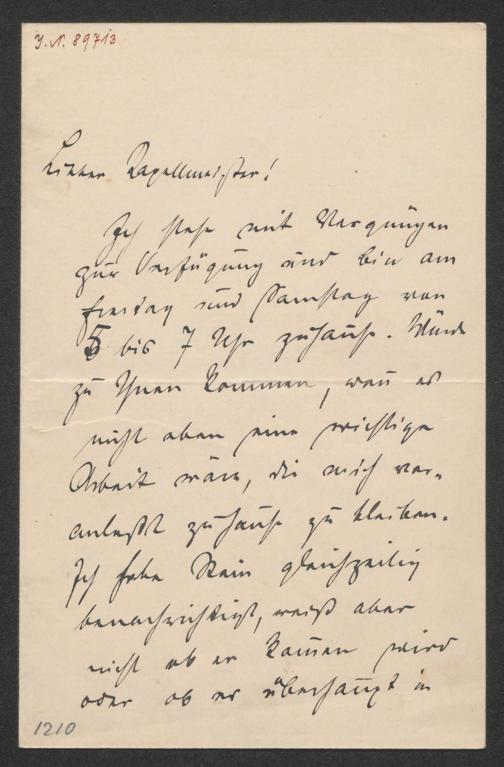 I.N. 89713
Lieber Kapellmeister!
Ich stehe mit Vergnügen
zur Verfügung und bin am
Freitag und Samstag von
5 bis 7 Uhr zuhause. Würde
zu Ihnen kommen, wenn es
nicht eben eine wichtige
Arbeit wäre, die mich ver-
anlaßt zuhause zu bleiben.
Ich habe Stein gleichzeitig
benachrichtigt, weiß aber
nicht ob er kom̄en wird
oder ob er überhaupt in
1210